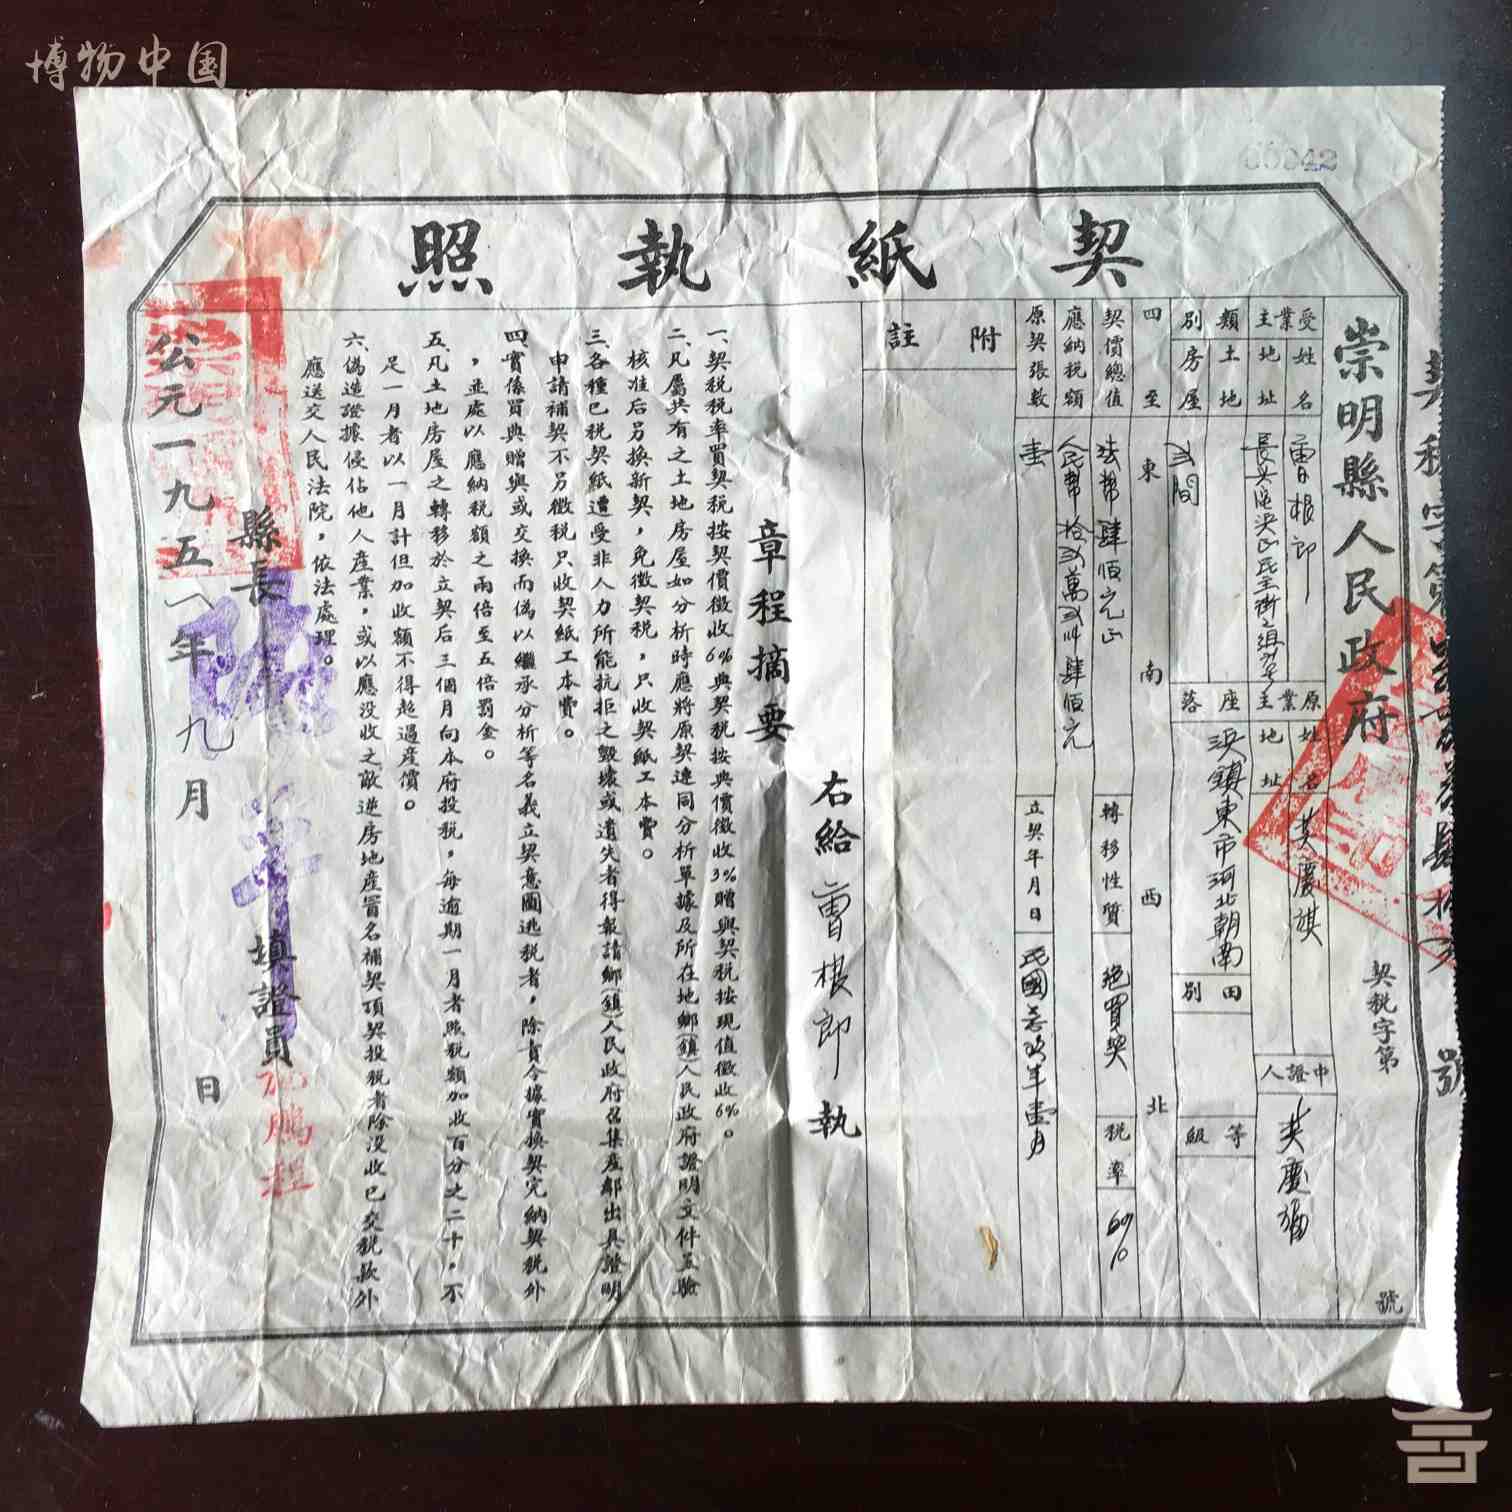 博物中国
60042
契紙執照
崇明縣人民政府
契稅字第
號
受業主
姓名
曹根郎
地址
原業主
姓名
黄慶祺
地址
中證人
黄慶瑞
類別
土地
房屋
弍間
座落
浜鎮東市河北朝南
田別
等級
四至
東
南
西
北
契價總值
法幣肆佰元正
轉移性質
絶買契
稅率
6%
應納稅額
人民幣拾弍萬弍仟肆佰元
原契張數
壹
立契年月日
附註
右給曹根郎執
章程摘要
一、契稅稅率買契稅按契價徵收6%典契稅按典價徵收3%贈與契稅按現值徵收6%。
二、凡屬共有之土地房屋如分析時應將原契連同分析單據及所在地鄉(鎮)人民政府證明文件呈驗
核准后另換新契，免徵契稅，只收契紙工本費。
三、各種已稅契紙遭受非人力所能抗拒之毀壞或遺失者得報請鄉(鎮)人民政府召集産鄰出具證明
申請補契不另徵稅只收契紙工本費。
四、實係買典贈與或交換而偽以繼承分析等名義立契意圖逃稅者，除責令據實換契完納契稅外
，並處以應納稅額之兩倍至五倍罰金。
五、凡土地房屋之轉移於立契后三個月向本府投稅，每逾期一月者照稅額加收百分之二十，不
足一月者以一月計但加收額不得超過産價。
六、偽造證據侵佔他人産業，或以應没收之敵逆房地産冒名補契頂契投稅者除没收已交稅款外
應送交人民法院，依法處理。
縣長
填證員
施鵬程
公元一九五八年九月 日